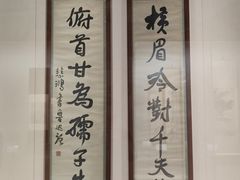 横眉冷對千夫
俯首甘為孺子
悲鴻